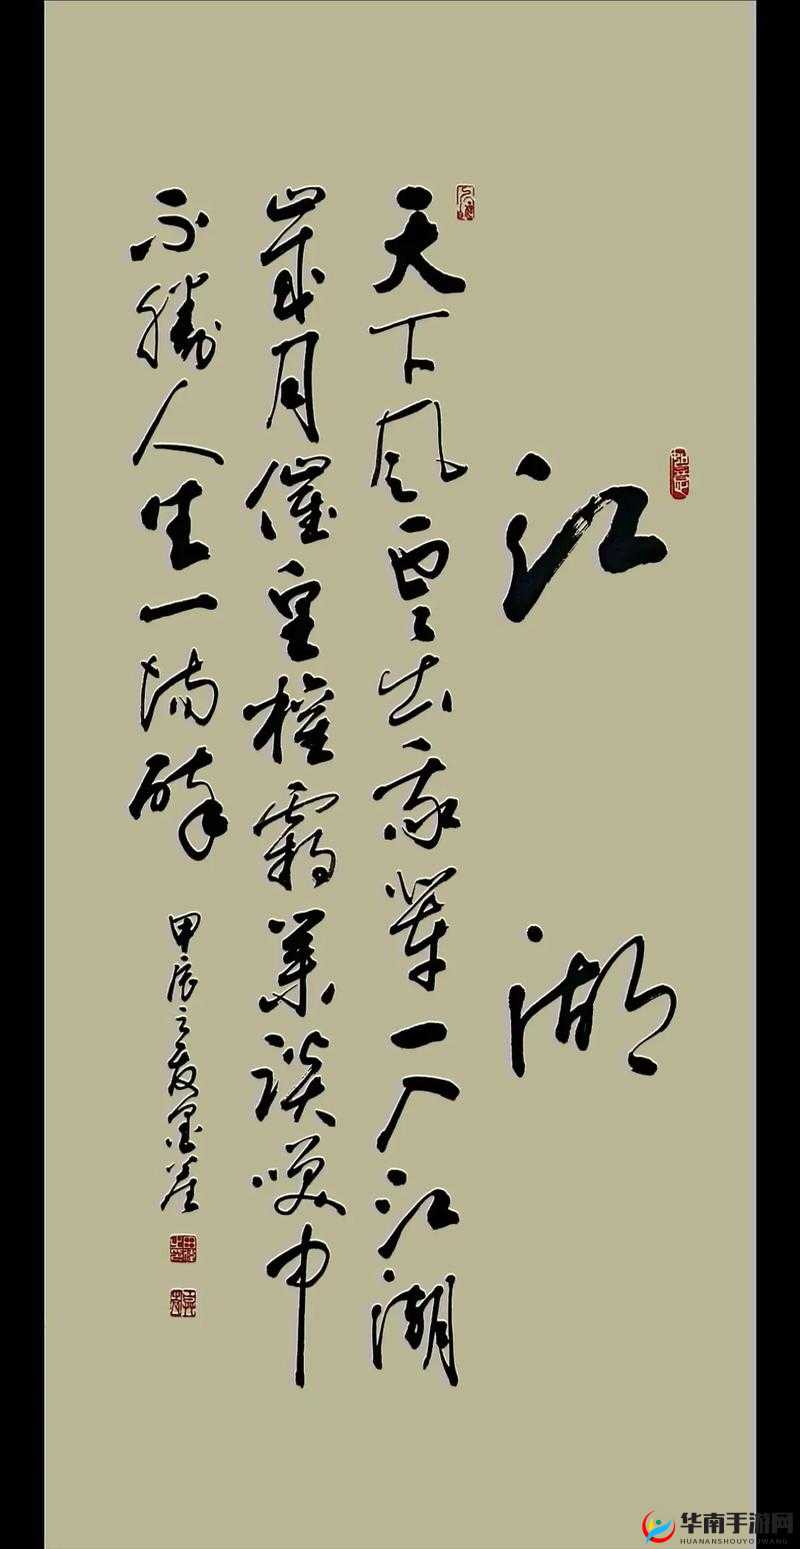 江湖
天下風雲出我輩一入江湖
歲月催皇權霸業談笑中
不勝人生一場醉
甲辰之
华南手游网
HUANANSHOUYOUWANG